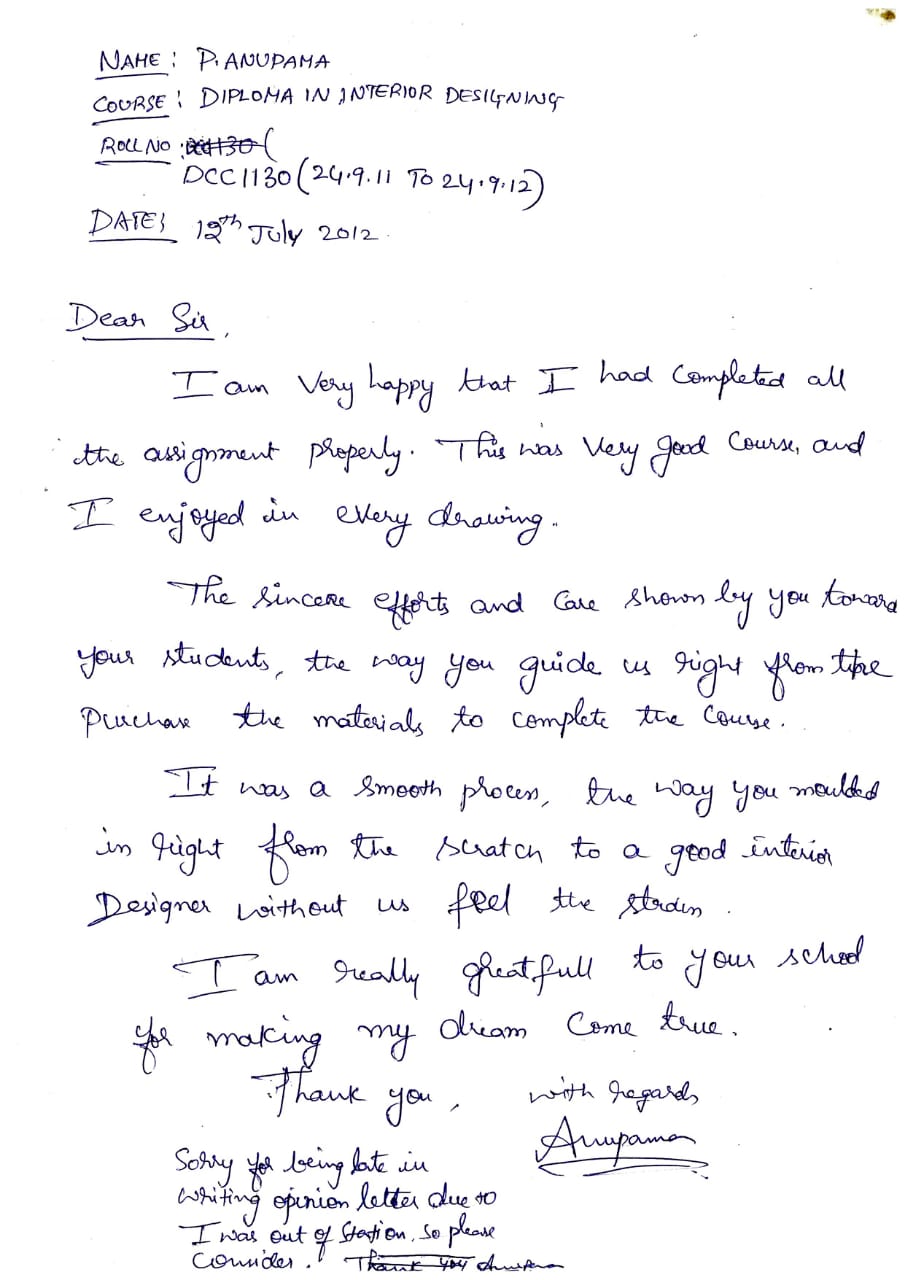 NAME: P. ANUPAMA
COURSE: DIPLOMA IN INTERIOR DESIGNING
ROLL NO :
DCC1130 (24.9.11 TO 24.9.12)
DATE: 12th July 2012.
Dear Sir,
I am Very happy that I had Completed all
the assignment properly. This was Very good Course, and
I enjoyed in every drawing.
The sincere efforts and Care shown by you toward
your students, the way you guide us right from
purchase the materials to complete the Course.
It was a smooth process, the way you moulded
in right from the scratch to a good interior
Designer without us feel the
I am really greatfull to your school
for making my dream Come true.
Thank you, with regards
Anupama
Sorry for being late in
writing opinion letter due to
I was out of Station, so please
Consider. Thank you Anupama